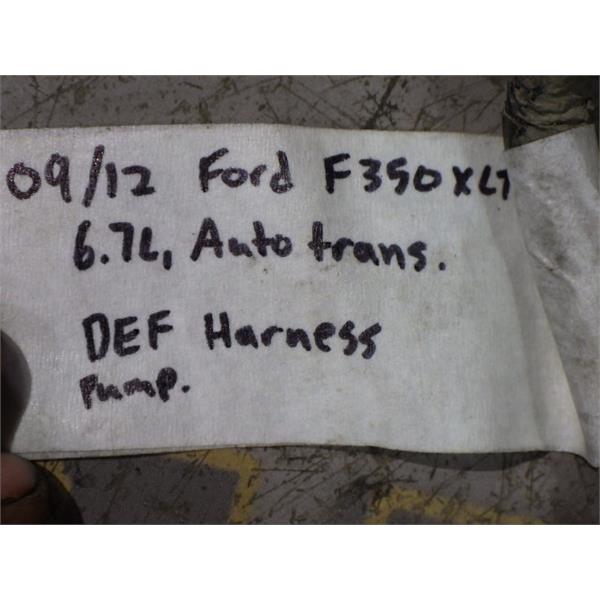 09/12 Ford F350 XLT
6.7L, Auto trans.
DEF Harness
Pump.